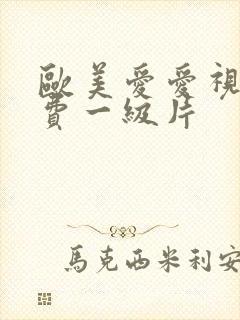 歐美愛愛視
費一級片
馬克西米利安